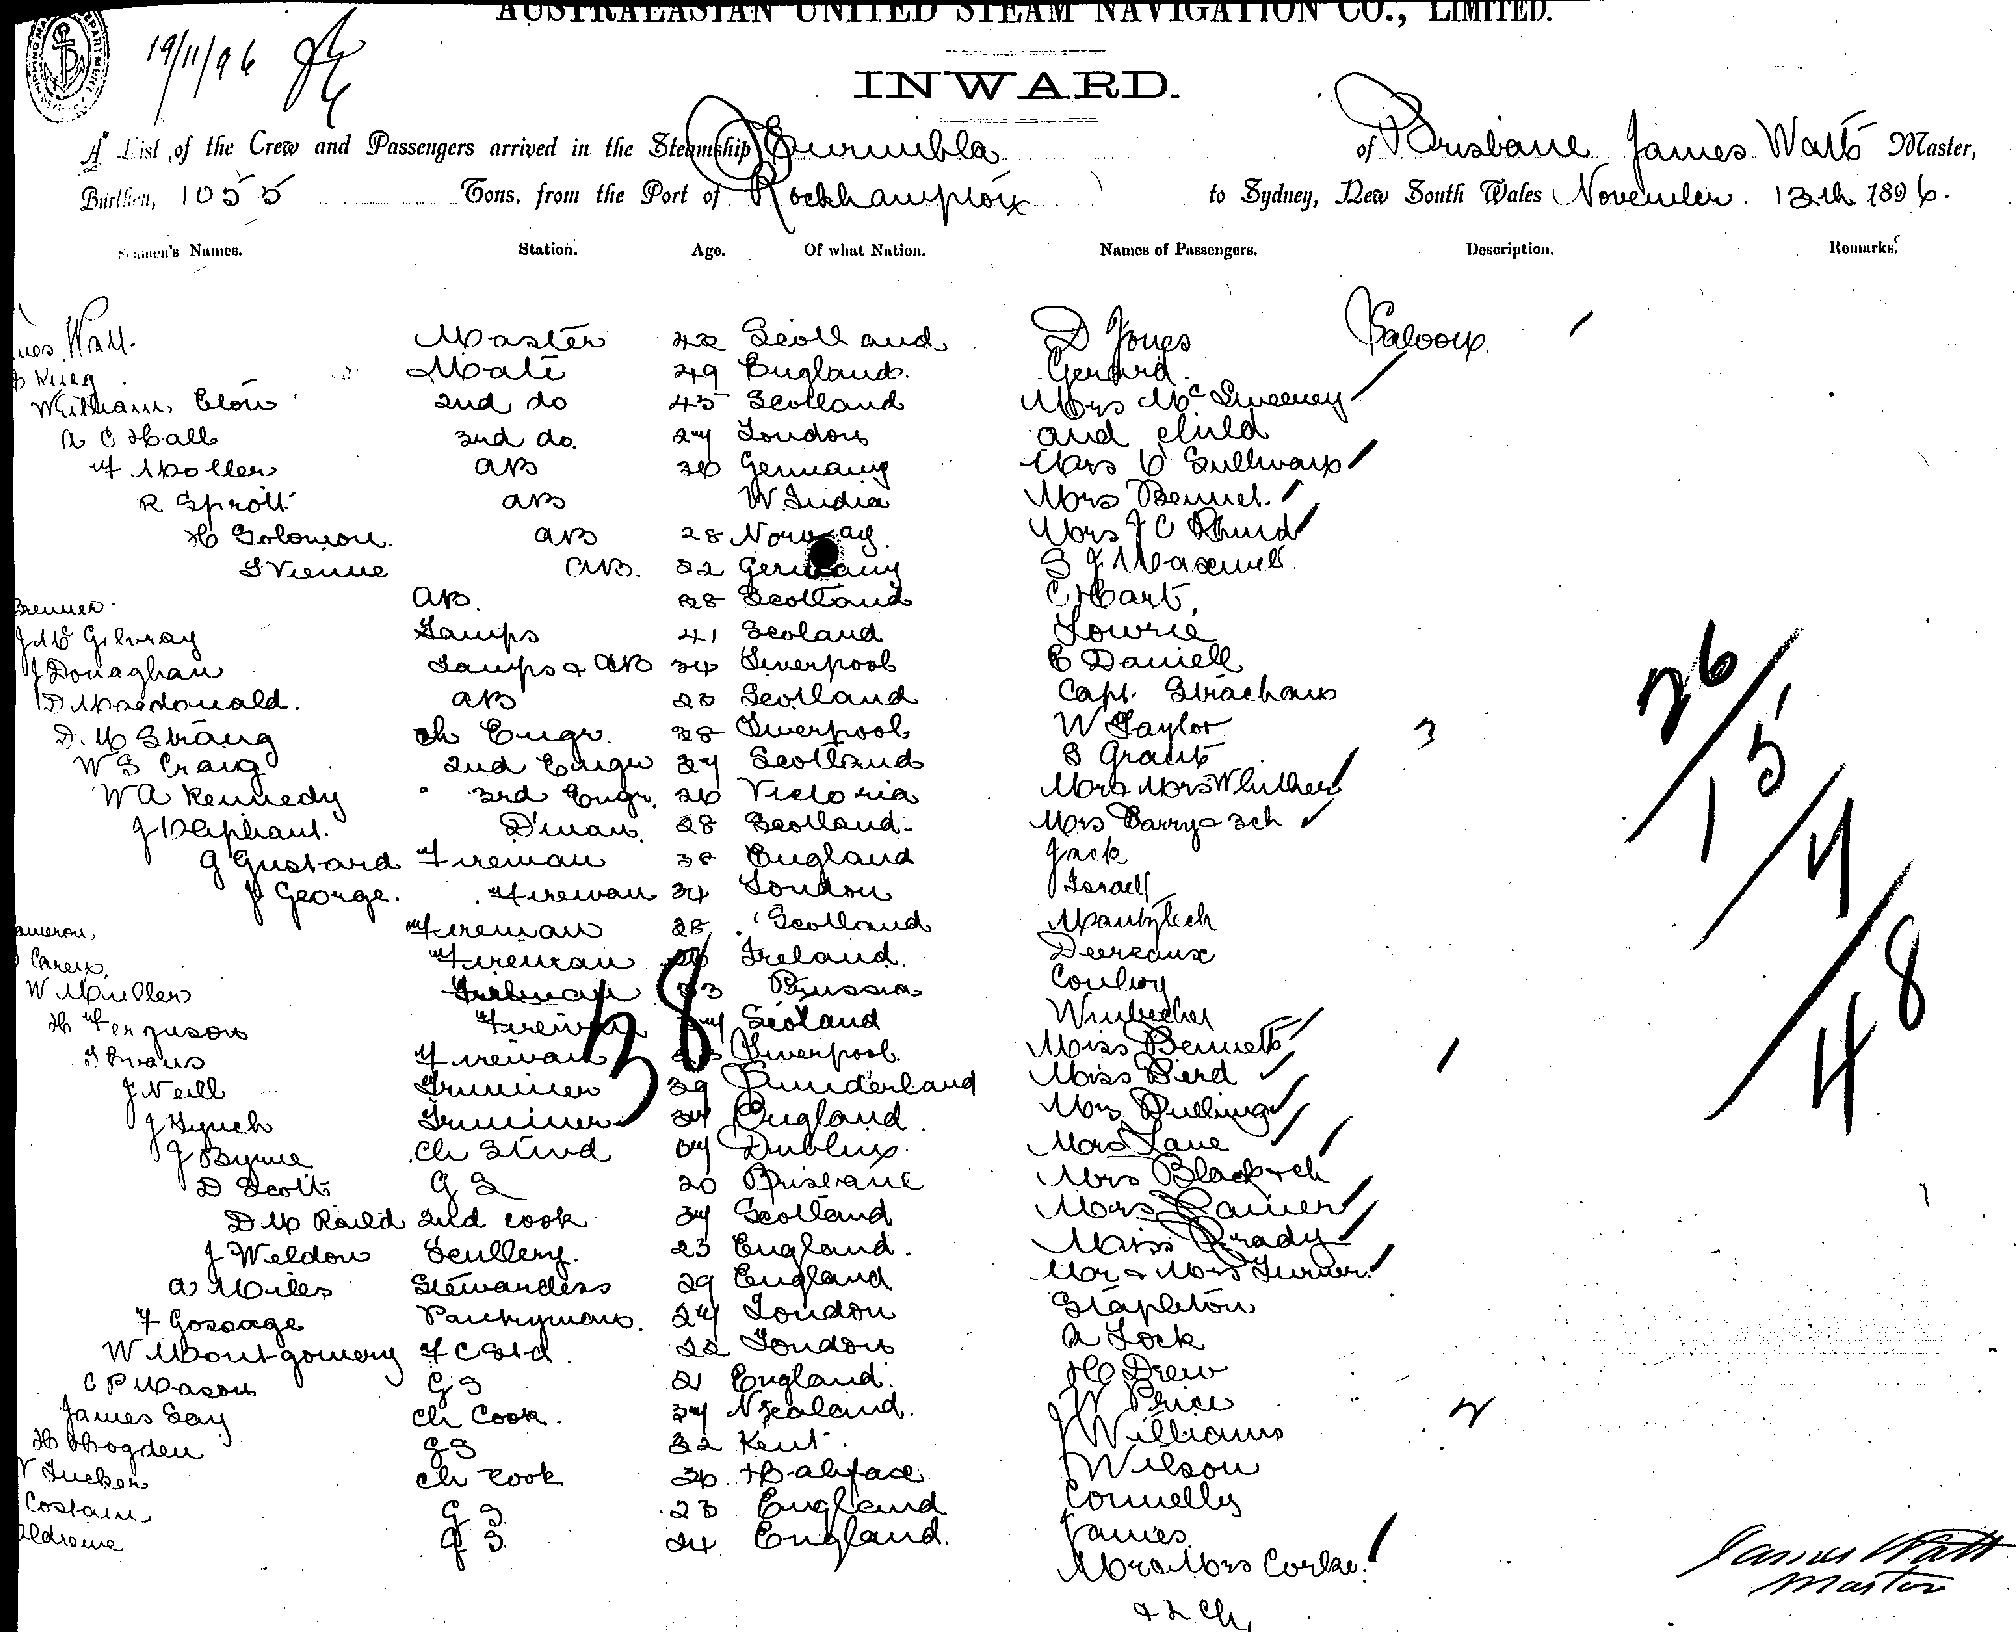 AUSTRALASIAN UNITED STEAM NAVIGATION CO., LIMITED.
19/11/96
INWARD.
A List of the Crew and Passengers arrived in the Steamship Burrumbla of Brisbane James Watt Master,
Burthen, 1055 Tons, from the Port of Rockhampton to Sydney, New South Wales November 13th 1896.
Seamen's Names. Station. Age. Of what Nation. Names of Passengers. Description. Remarks.
Watt. Master 42 Scotland D Jones Saloon
Mate 49 England. Gerard
William 2nd do 45 Scotland Mrs McSweeney
A C Hall 3rd do. 27 London and child
F Moller AB 36 Germany Mrs O Sullivan
R Sprott AB W. India Mrs Bennet.
H Solomon. AB 28 Norway. Mrs F C
S Vienne AB. 32 Germany S J Maxwell
Brenner AB. 28 Scotland C Hart,
J Mc Gilvray Lamps 41 Scoland Lowrie
J Donaghan Lamps & AB 34 Liverpool E Daniell
D Macdonald. AB 28 Scotland Capt. Strachan
D. Mc Strang ch Engr. 38 Liverpool W Taylor 3
W S Craig 2nd Engr 37 Scotland S Grant
W A Kennedy 3rd Engr. 26 Victoria Mr & Mrs Whither
J Oliphant. D'man. 28 Scotland. Mrs Barry & 3ch
G Gustard Fireman 38 England Jack
J George. Fireman 34 London Israel
Cameron, Fireman 28 Scotland
Carey. Fireman Ireland. Devreaux
W Mueller Fireman 33 Prussia Conboy
H Ferguson Fireman Scotland
Evans Fireman Liverpool. Miss Bennett
J Neill Trimmer 39 Sunderland Miss Bird
J Lynch Trimmer 34 England. Mrs
J Byrne Ch Stwd Dublin. Mrs Lane
D Scott G S 20 Brisbane Mrs Black & ch
D Mc Raild 2nd cook 34 Scotland Mrs
J Weldon Scullery. 23 England. Miss Brady
A Miles Stewardess 29 England Mr & Mrs Turner
F Gossage Pantryman. 24 London Stapleton
W Montgomery F C Std. 22 London A Lock
C P Mason G S 21 England. H Drew
James Gay Ch Cook. 34 N Zealand. W Price
H Hogden G S 32 Kent. J Williams
Tucker Ch Cook 36 Haliface Wilson
Costain G S. 23 England Connelly
G S. 24 England. James
Mr & Mrs Corke.
& 2 Ch,
38
26
15
7
48
James Watt
Master